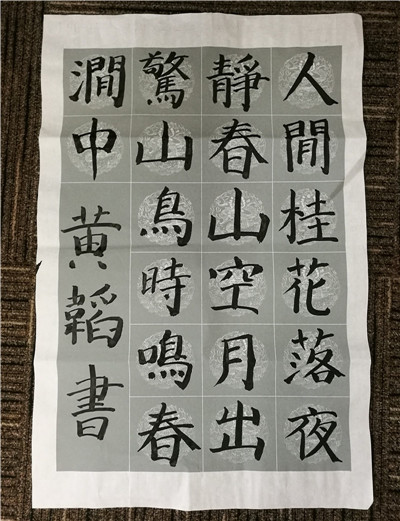 人閒桂花落夜
静春山空月出
驚山鳥時鳴春
澗中
黄韜書